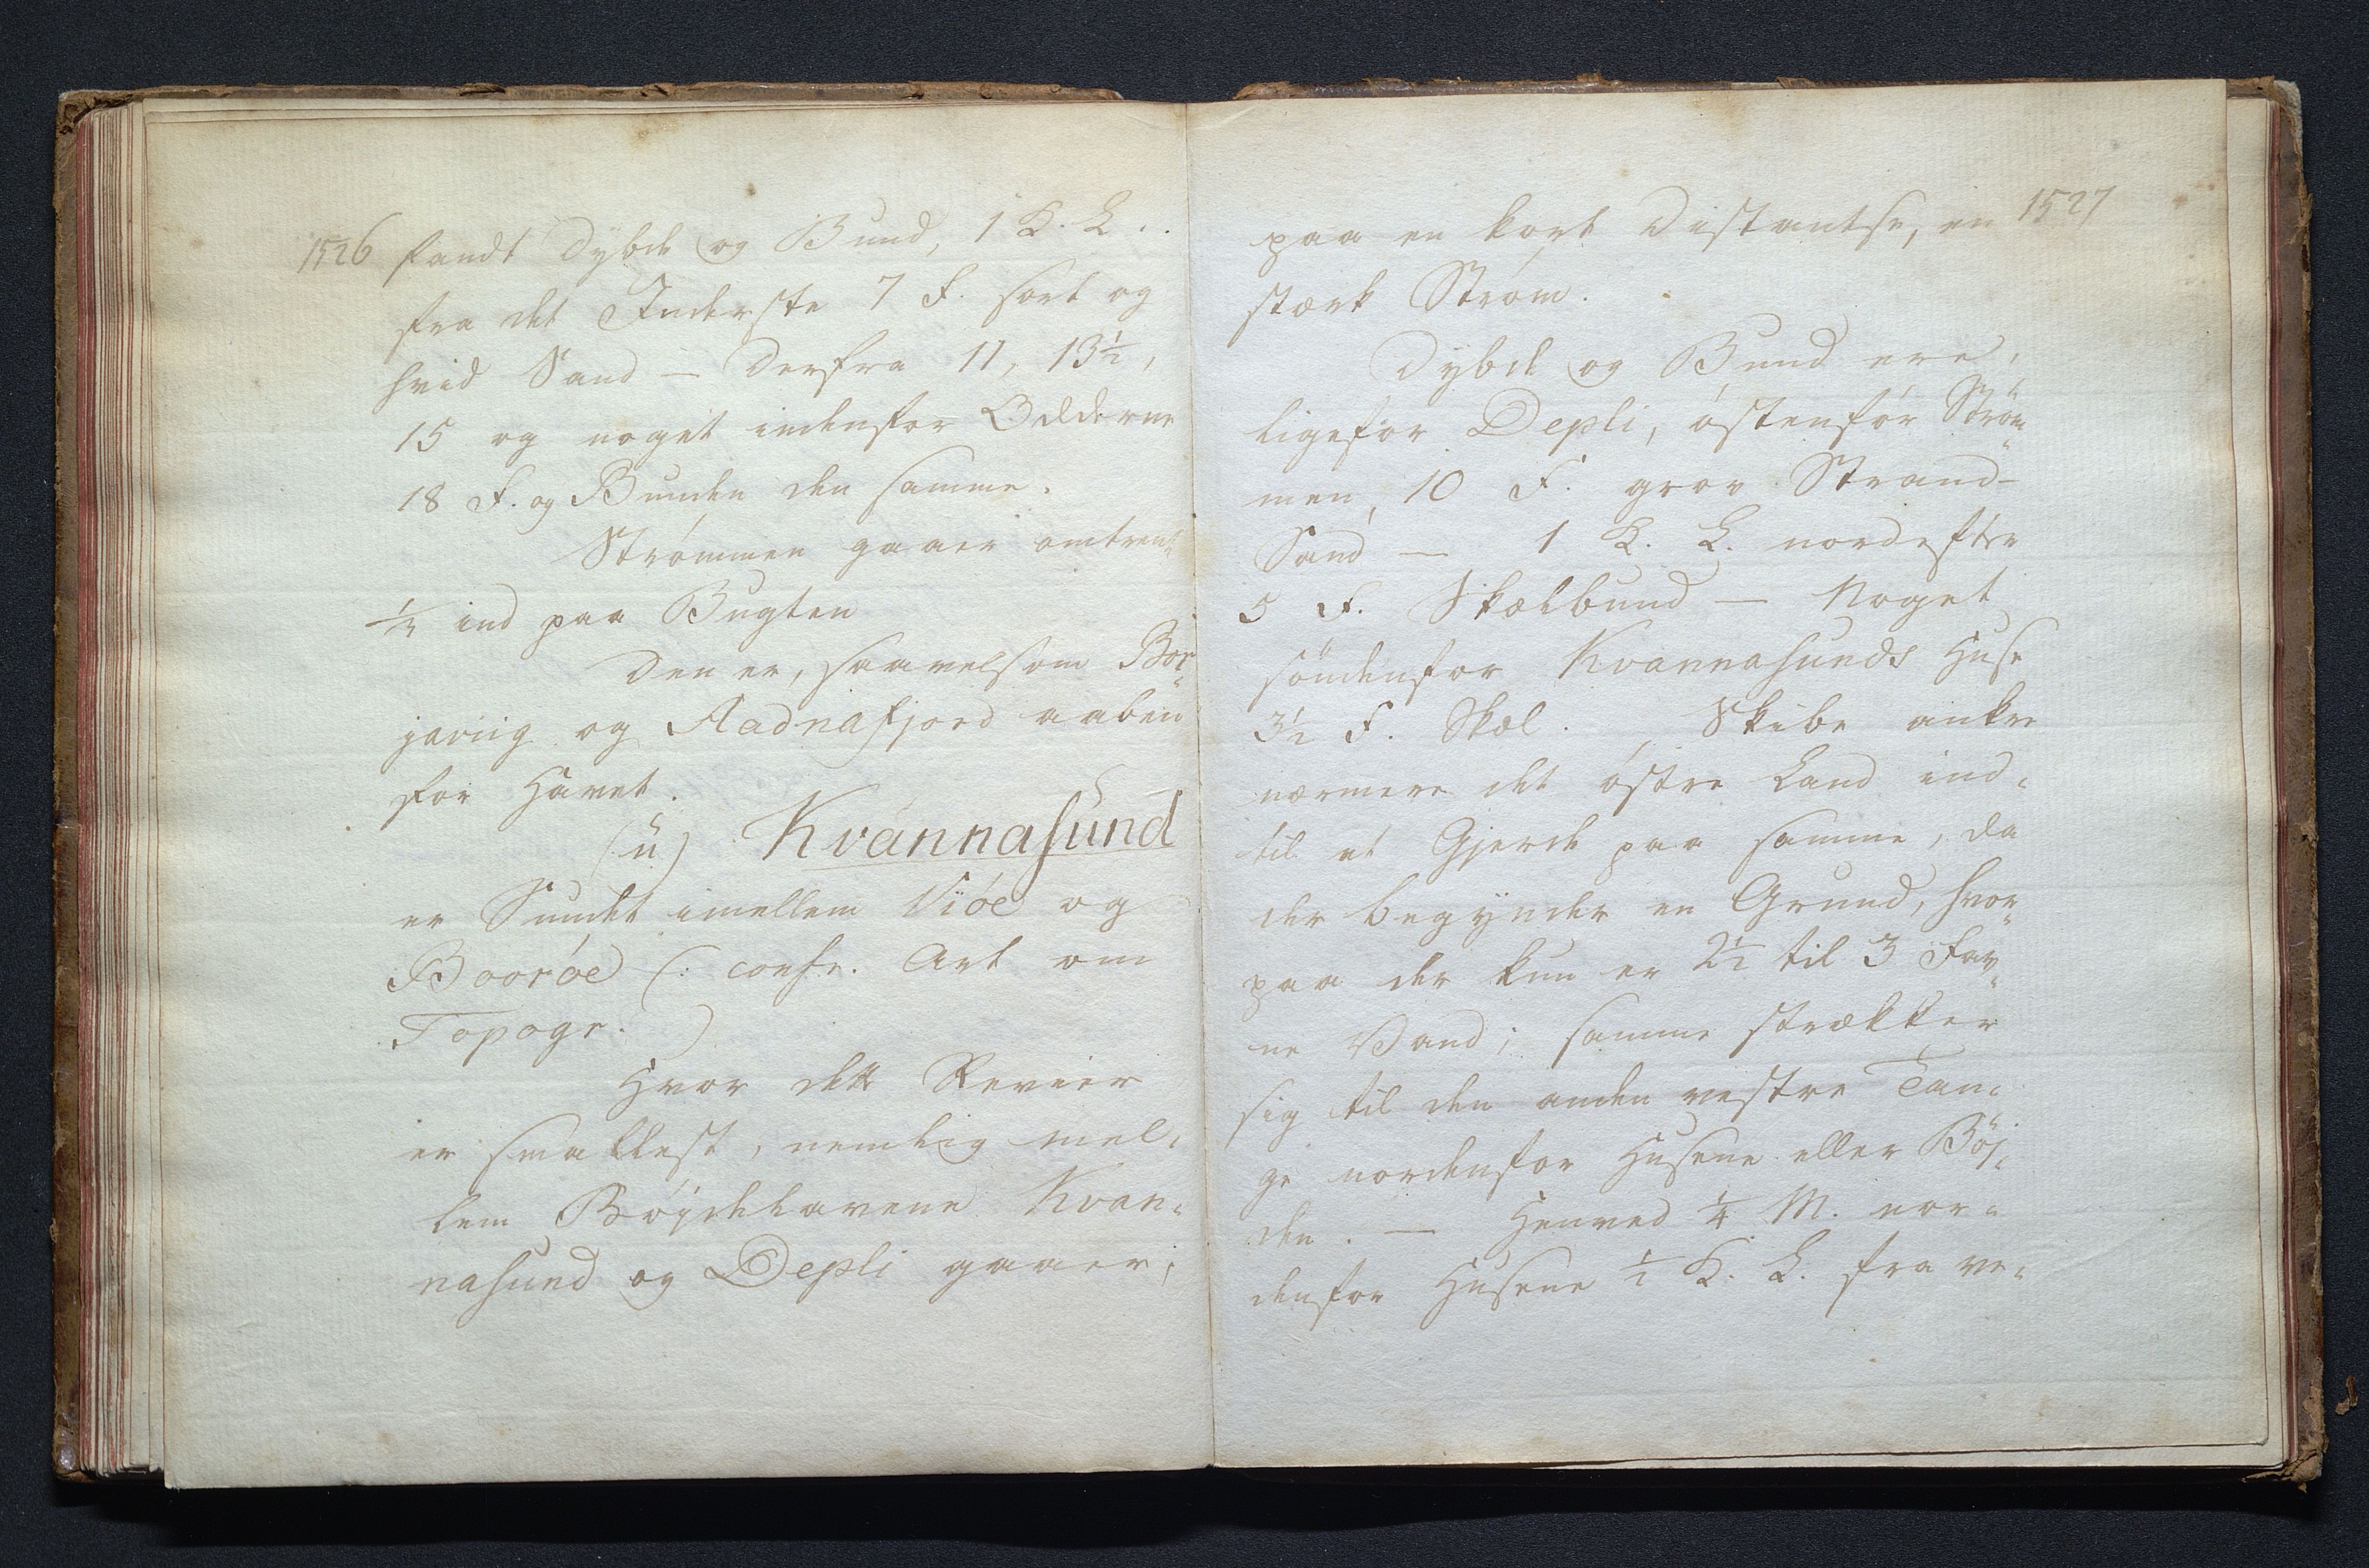 1526
fandt Dybde og Bund, 1 K. L.
fra det Inderste 7 F. sort og
hvid Sand — derfra 11, 13½,
15 og noget indenfor Odderne
18 F. og Bunden den samme.
Strømmen gaaer omtrent
½ ind paa Bugten
Den er, saavelsom Bor-
javiig og Aadnafjord aaben
for Havet.
(ü) Kvannasund
er Sundet imellem Viöe og
Booröe (: confr. Art om
Topogr. )
Hvor dette Revier
er smallest, nemlig mel-
lem Bøjdelavene Kvan-
nasund og Depli gaaer,
1527
paa en kort Distantse, en
stærk Strøm.
Dybde og Bund ere,
ligefor Depli, östenfor Ström-
men, 10 F. grov Strand-
Sand — 1 K. L. nordefter
5 F. Skælbund — Noget
söndenfor Kvannasunds Huse
3½ F. Skæl. Skibe ankre
nærmere det østre Land ind-
til et Gjerde paa samme, da
der begynder en Grund, hvor-
paa der kun er 2½ til 3 Fav-
ne Vand; samme strækker
sig til den anden vestre Tan-
ge nordenfor Husene eller Böj-
den. — Henved ¼ M. nor-
denfor Husene ½ K. L. fra ve-